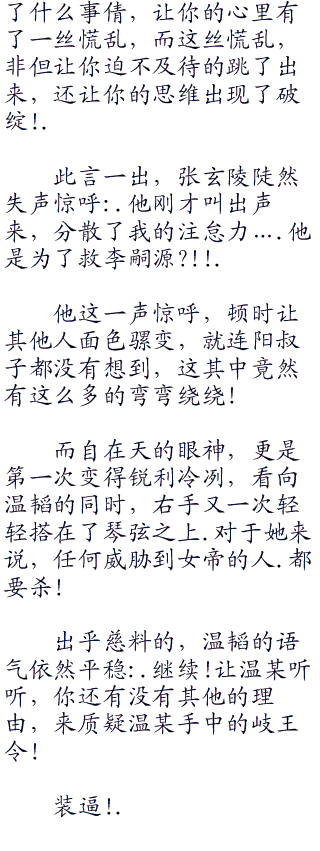 了什么事倩，让你的心里有
了一丝慌乱，而这丝慌乱，
非但让你迫不及待的跳了出
来，还让你的思维出现了破
绽!.
此言一出，张玄陵陡然
失声惊呼:.他刚才叫出声
来，分散了我的注怠力….他
是为了救李嗣源?!!.
他这一声惊呼，顿时让
其他人面色骡变，就连阳叔
子都没有想到，这其中竟然
有这么多的弯弯绕绕!
而自在天的眼神，更是
第一次变得锐利冷冽，看向
温韬的同时，右手又一次轻
轻搭在了琴弦之上.对于她来
说，任何威胁到女帝的人.都
要杀!
出乎慈料的，温韬的语
气依然平稳:.继续!让温某听
听，你还有没有其他的理
由，来质疑温某手中的岐王
令!
装逼!.